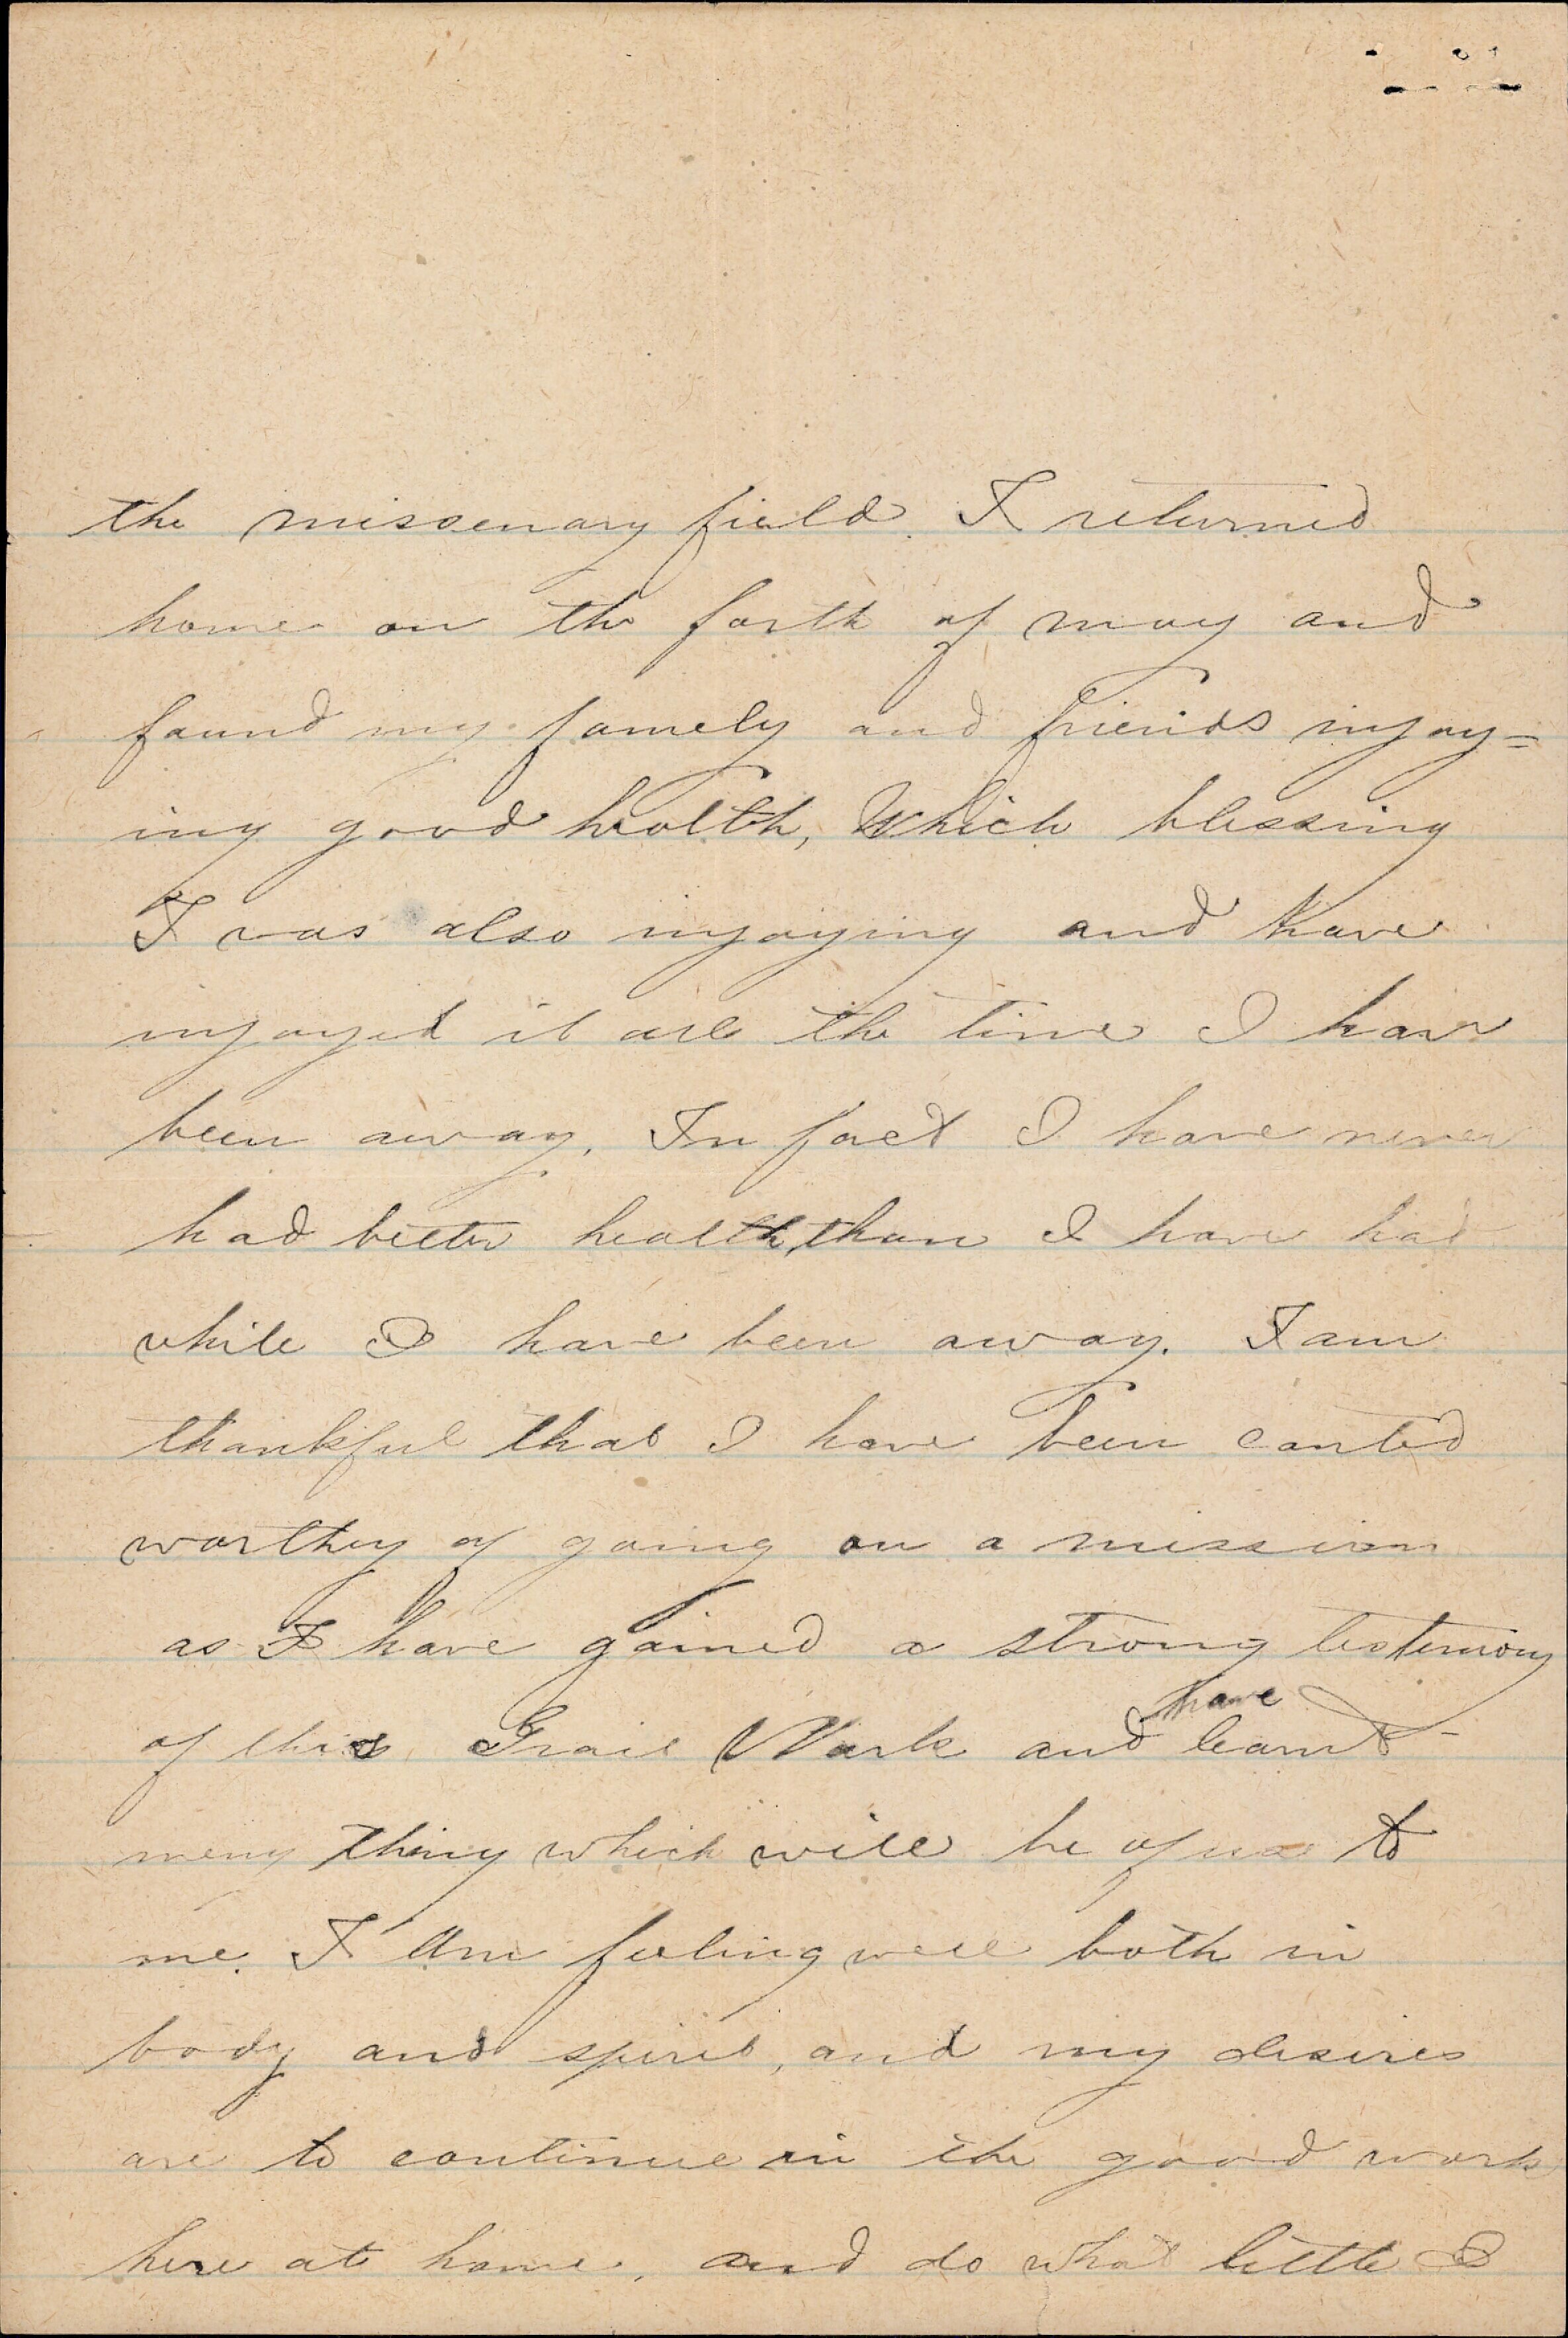 the missenary field. I returned
home on the forth of may and
found my famely and friends injoy=
ing good health, Which blessing
I was also injoying and have
injoyed it all the time I have
been away. In fact I have never
had better health, than I have had
while I have been away. I am
thankful that I have been counted
worthey of going on a mission
as I have gained a strong testemony
have
of this Work and learnt
meny thing which will be of use to
me. I Am feeling well both in
body and spirit, and my desires
are to continue in the good work
here at home, and do what little I